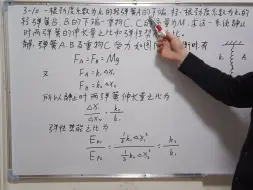 3-10 一根劲度系数为k₁的轻弹簧A的下端,挂一根劲度系数为k₂的
轻弹簧B,B的下端 重物C,C的质量为M,求这一系统静止
时两弹簧的伸长量之比和弹性势能之比。
解:弹簧A、B及重物C受力如图 有
F_A = F_B = Mg
又 F_A = k₁△x₁
F_B = k₂△x₂
所以静止时两弹簧伸长量之比为
△x₁/△x₂ = k₂/k₁
弹性势能之比为
E_{P1}/E_{P2} = ½k₁△x₁²/½k₂△x₂² = k₂/k₁
k₁
A